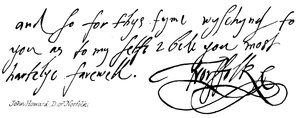 and so for thys tyme wyshyng to
you as to my selfe I bide you most
hartelye farewell.
Norffolk
John Howard, D. of Norfolk.